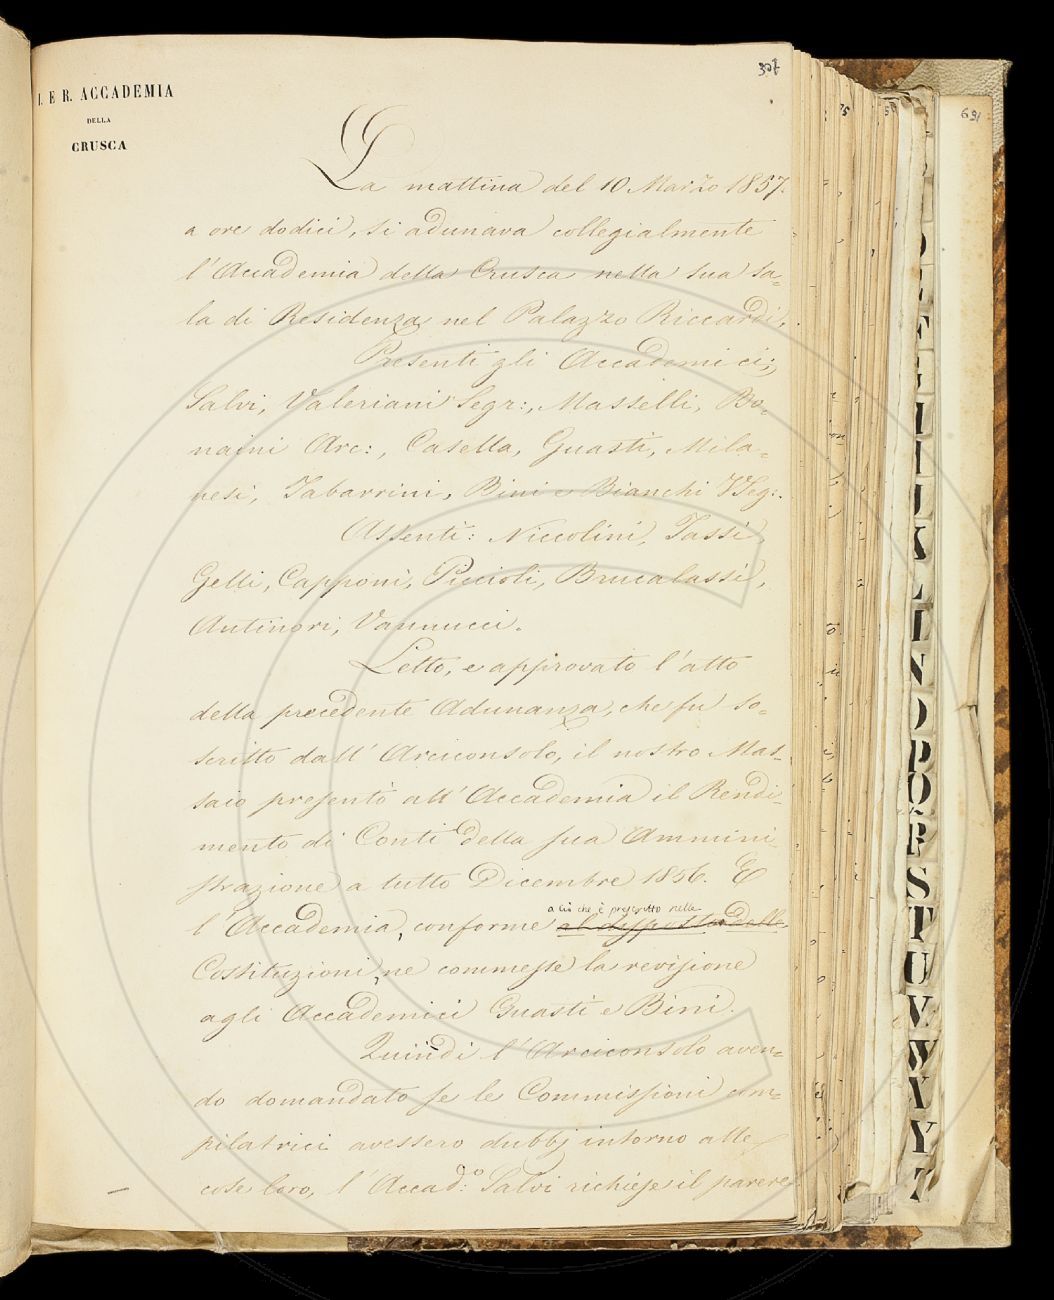 307
691
I. E R. ACCADEMIA
DELLA
CRUSCA
La mattina del 10 Marzo 1857.
a ore dodici, si adunava collegialmente
l'Accademia della Crusca nella sua sa-
la di Residenza nel Palazzo Riccardi.
Presenti gli Accademici;
Salvi, Valeriani Segr:, Masselli, Bo-
naini Arc:, Casella, Guasti, Mila-
nesi, Tabarrini, Bini e Bianchi VSeg:.
Assenti: Niccolini, Tassi,
Gelli, Capponi, Piccioli, Brucalassi,
Antinori, Vannucci.
Letto, e approvato l'atto
della precedente Adunanza, che fu so-
scritto dall'Arciconsolo, il nostro Mas-
saio presentò all'Accademia il Rendi-
mento di Conti della sua Ammini-
strazione a tutto Dicembre 1856. E
a ciò che è prescritto nelle
l'Accademia, conforme al disposto delle
Costituzioni, ne commesse la revisione
agli Accademici Guasti e Bini.
Quindi l'Arciconsolo aven-
do domandato se le Commissioni com-
pilatrici avessero dubbj intorno alle
cose loro, l'Accad:o Salvi richiese il parere
D
E
F
G
H
I
J
K
L
M
N
O
P
Q
R
S
T
U
V
W
X
Y
Z